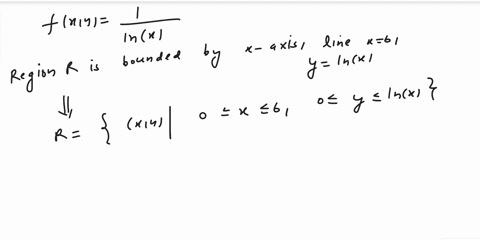 f(x,y) = 1/ln(x)
Region R is bounded by x-axis, line x=6,
y = ln(x)
⇓
R = { (x,y) | 0 ≤ x ≤ 6, 0 ≤ y ≤ ln(x) }